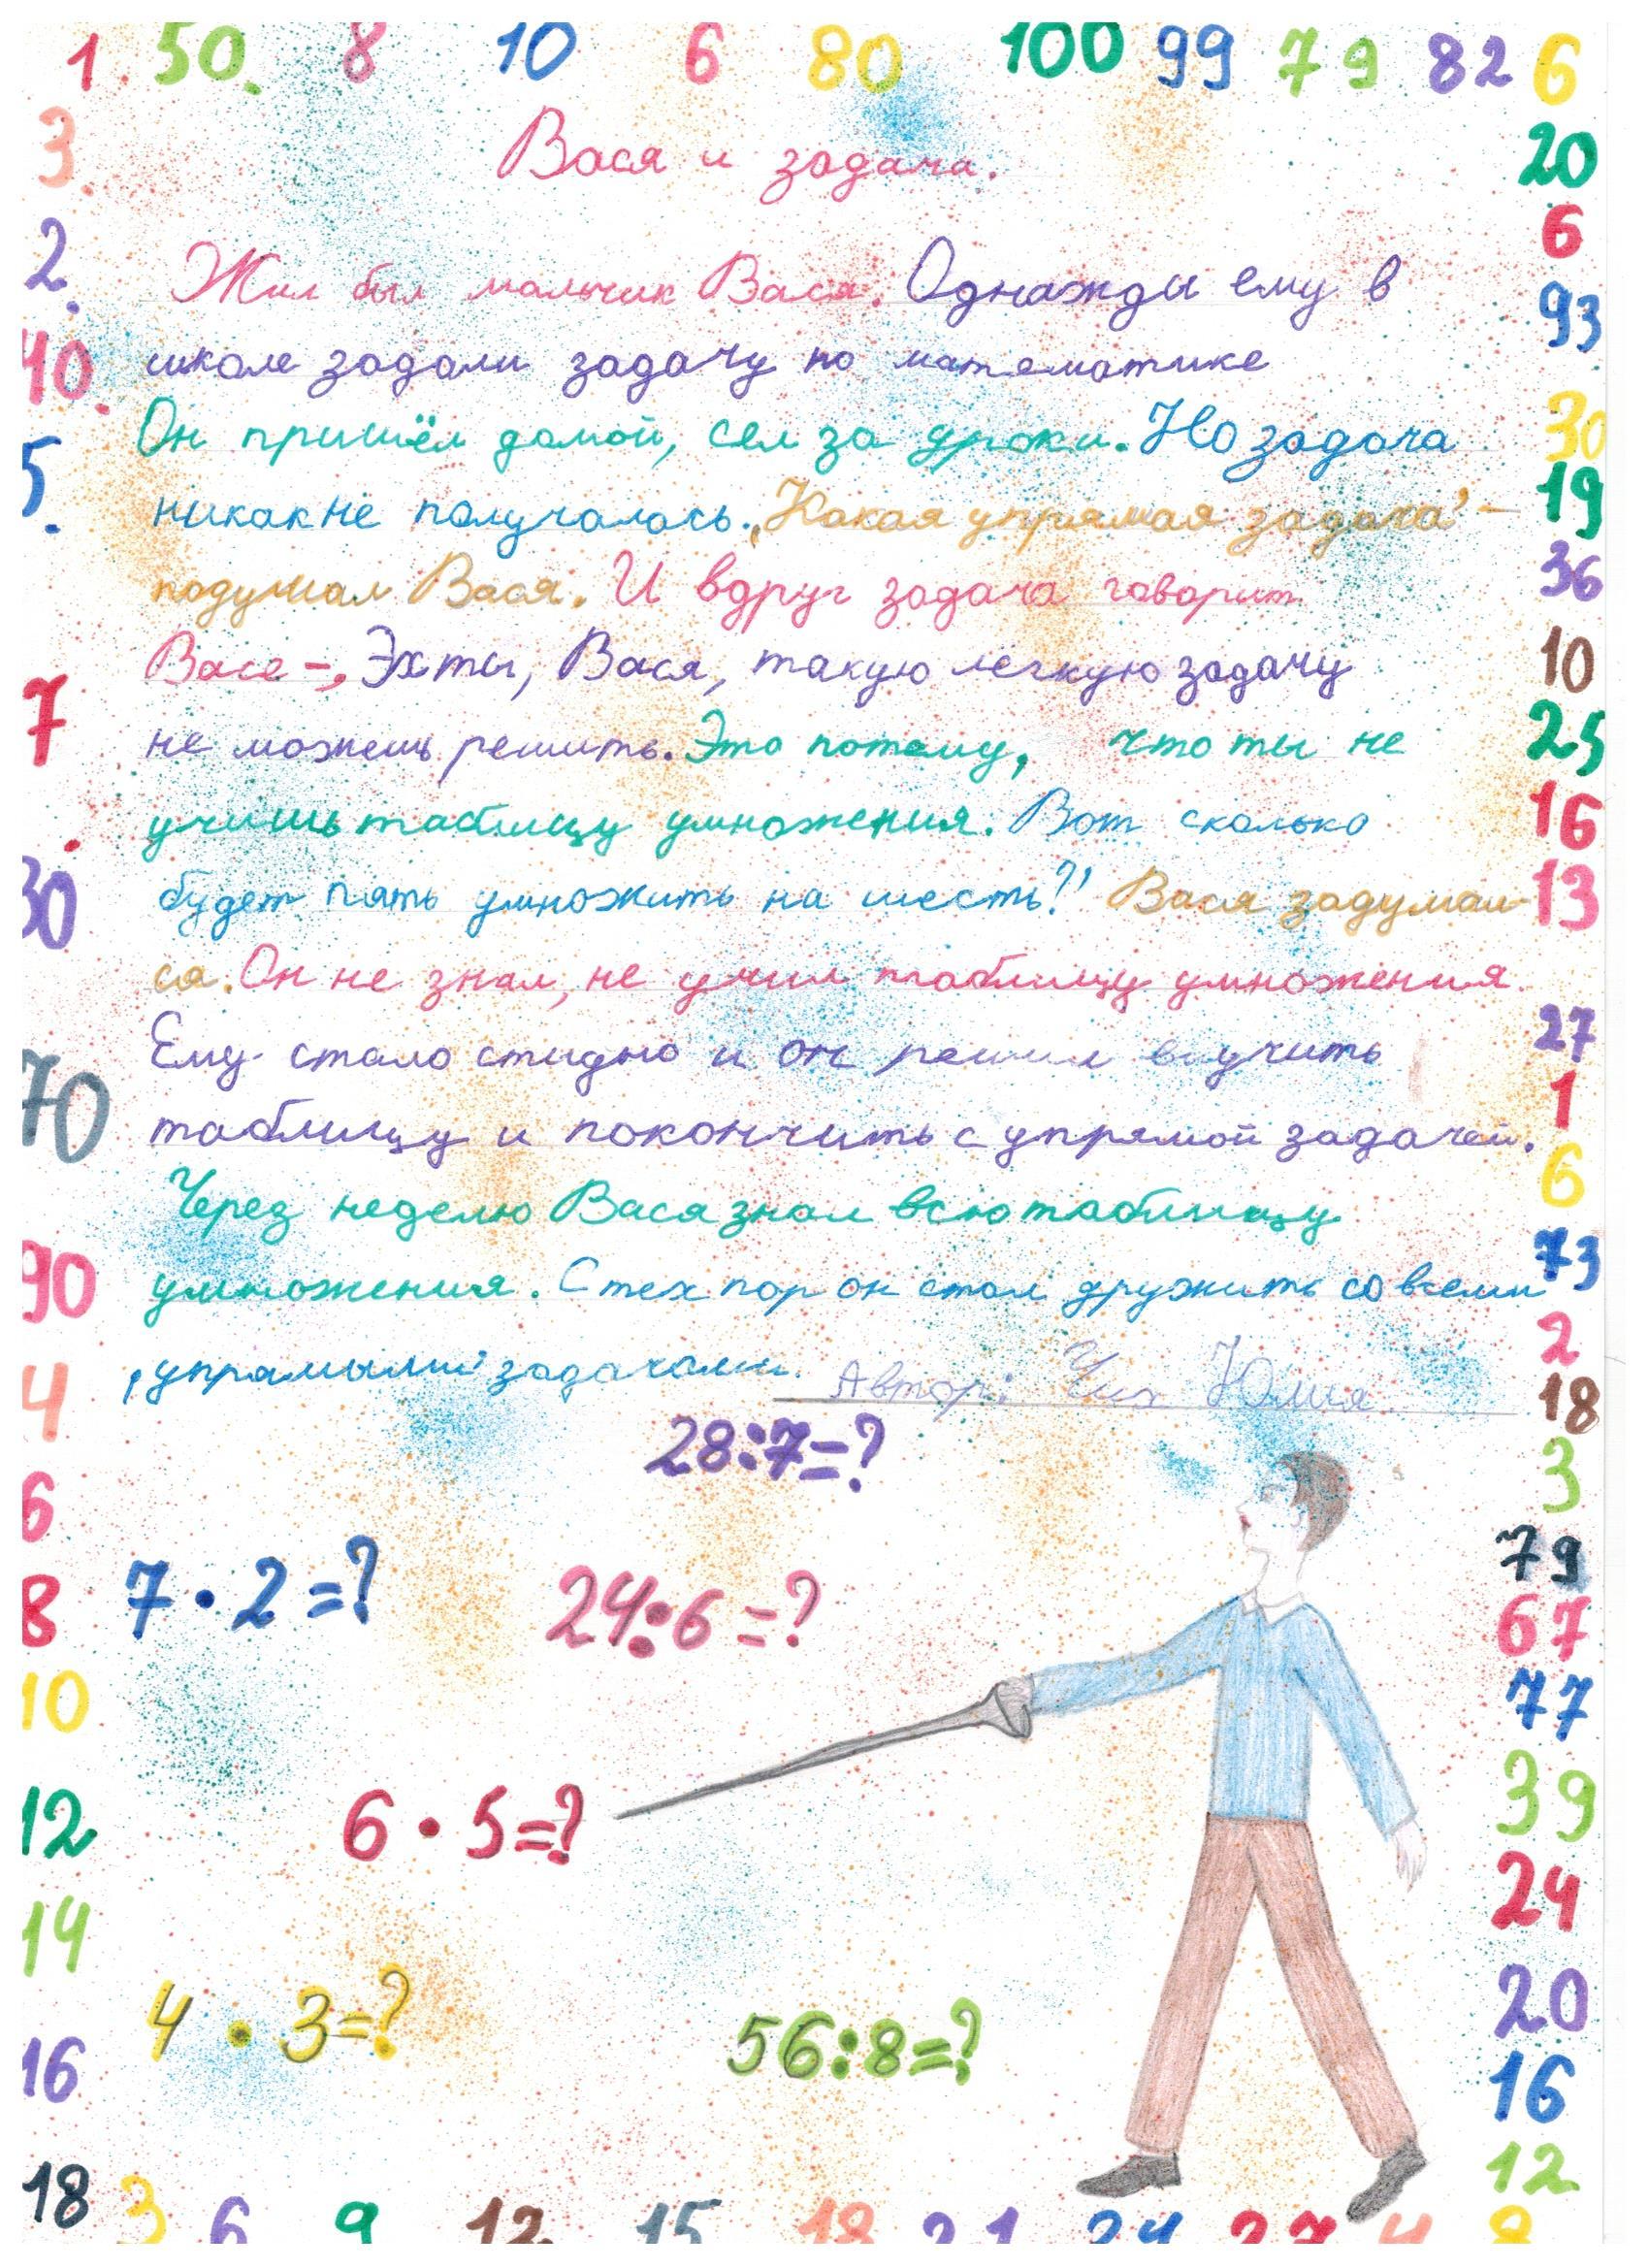 1. 50. 8 10 6 80 100 99 79 82 6
3. 20
2. 6
40. 93
5. 30
7 19
30 36
70 10
90 25
4 16
6 13
8 27
10 1
12 6
14 73
16 2
18 18
3
79
67
77
39
24
20
16
12
Вася и задача.
Жил был мальчик Вася. Однажды ему в
школе задали задачу по математике
Он пришёл домой, сел за уроки. Но задача
никак не получалась. „Какая упрямая задача" –
подумал Вася. И вдруг задача говорит
Васе – „Эх ты, Вася, такую легкую задачу
не можешь решить. Это потому, что ты не
учишь таблицу умножения. Вот сколько
будет пять умножить на шесть?" Вася задумал-
ся. Он не знал, не учил таблицу умножения.
Ему стало стыдно и он решил выучить
таблицу и покончить с упрямой задачей.
Через неделю Вася знал всю таблицу
умножения. С тех пор он стал дружить со всеми
„упрямыми" задачами.
Автор: Чих Юлия.
28:7=?
7 · 2 =?
24:6 =?
6 · 5=?
4 · 3=?
56:8=?
3 6 9 12 15 18 21 24 27 4 8